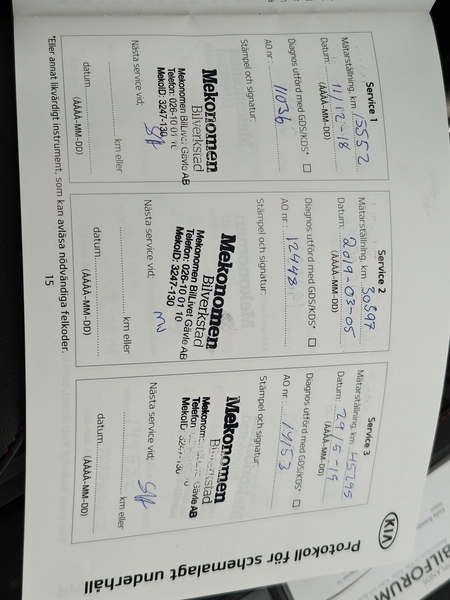 Protokoll för schemalagt underhåll
KIA
Service 1
Mätarställning, km 13552
Datum: 11/12-18
(ÅÅÅÅ-MM-DD)
Diagnos utförd med GDS/KDS* ☐
AO nr : 11036
Stämpel och signatur:
Mekonomen
Bilverkstad
Mekonomen BilLivet Gävle AB
Telefon: 026-10 01 10
MekoID: 3247-130
Nästa service vid;
km eller
datum (ÅÅÅÅ-MM-DD)
Service 2
Mätarställning, km 30397
Datum: 2019-03-05
(ÅÅÅÅ-MM-DD)
Diagnos utförd med GDS/KDS* ☐
AO nr : 12448
Stämpel och signatur:
Mekonomen
Bilverkstad
Mekonomen BilLivet Gävle AB
Telefon: 026-10 01 10
MekoID: 3247-130
Nästa service vid;
km eller
datum (ÅÅÅÅ-MM-DD)
Service 3
Mätarställning, km 45295
Datum: 29/5-19
(ÅÅÅÅ-MM-DD)
Diagnos utförd med GDS/KDS* ☐
AO nr : 14153
Stämpel och signatur:
Mekonomen
Bilverkstad
Gävle AB
Telefon
MekoID
Nästa service vid;
km eller
datum (ÅÅÅÅ-MM-DD)
*Eller annat likvärdigt instrument, som kan avläsa nödvändiga felkoder.
15
BILFORUM